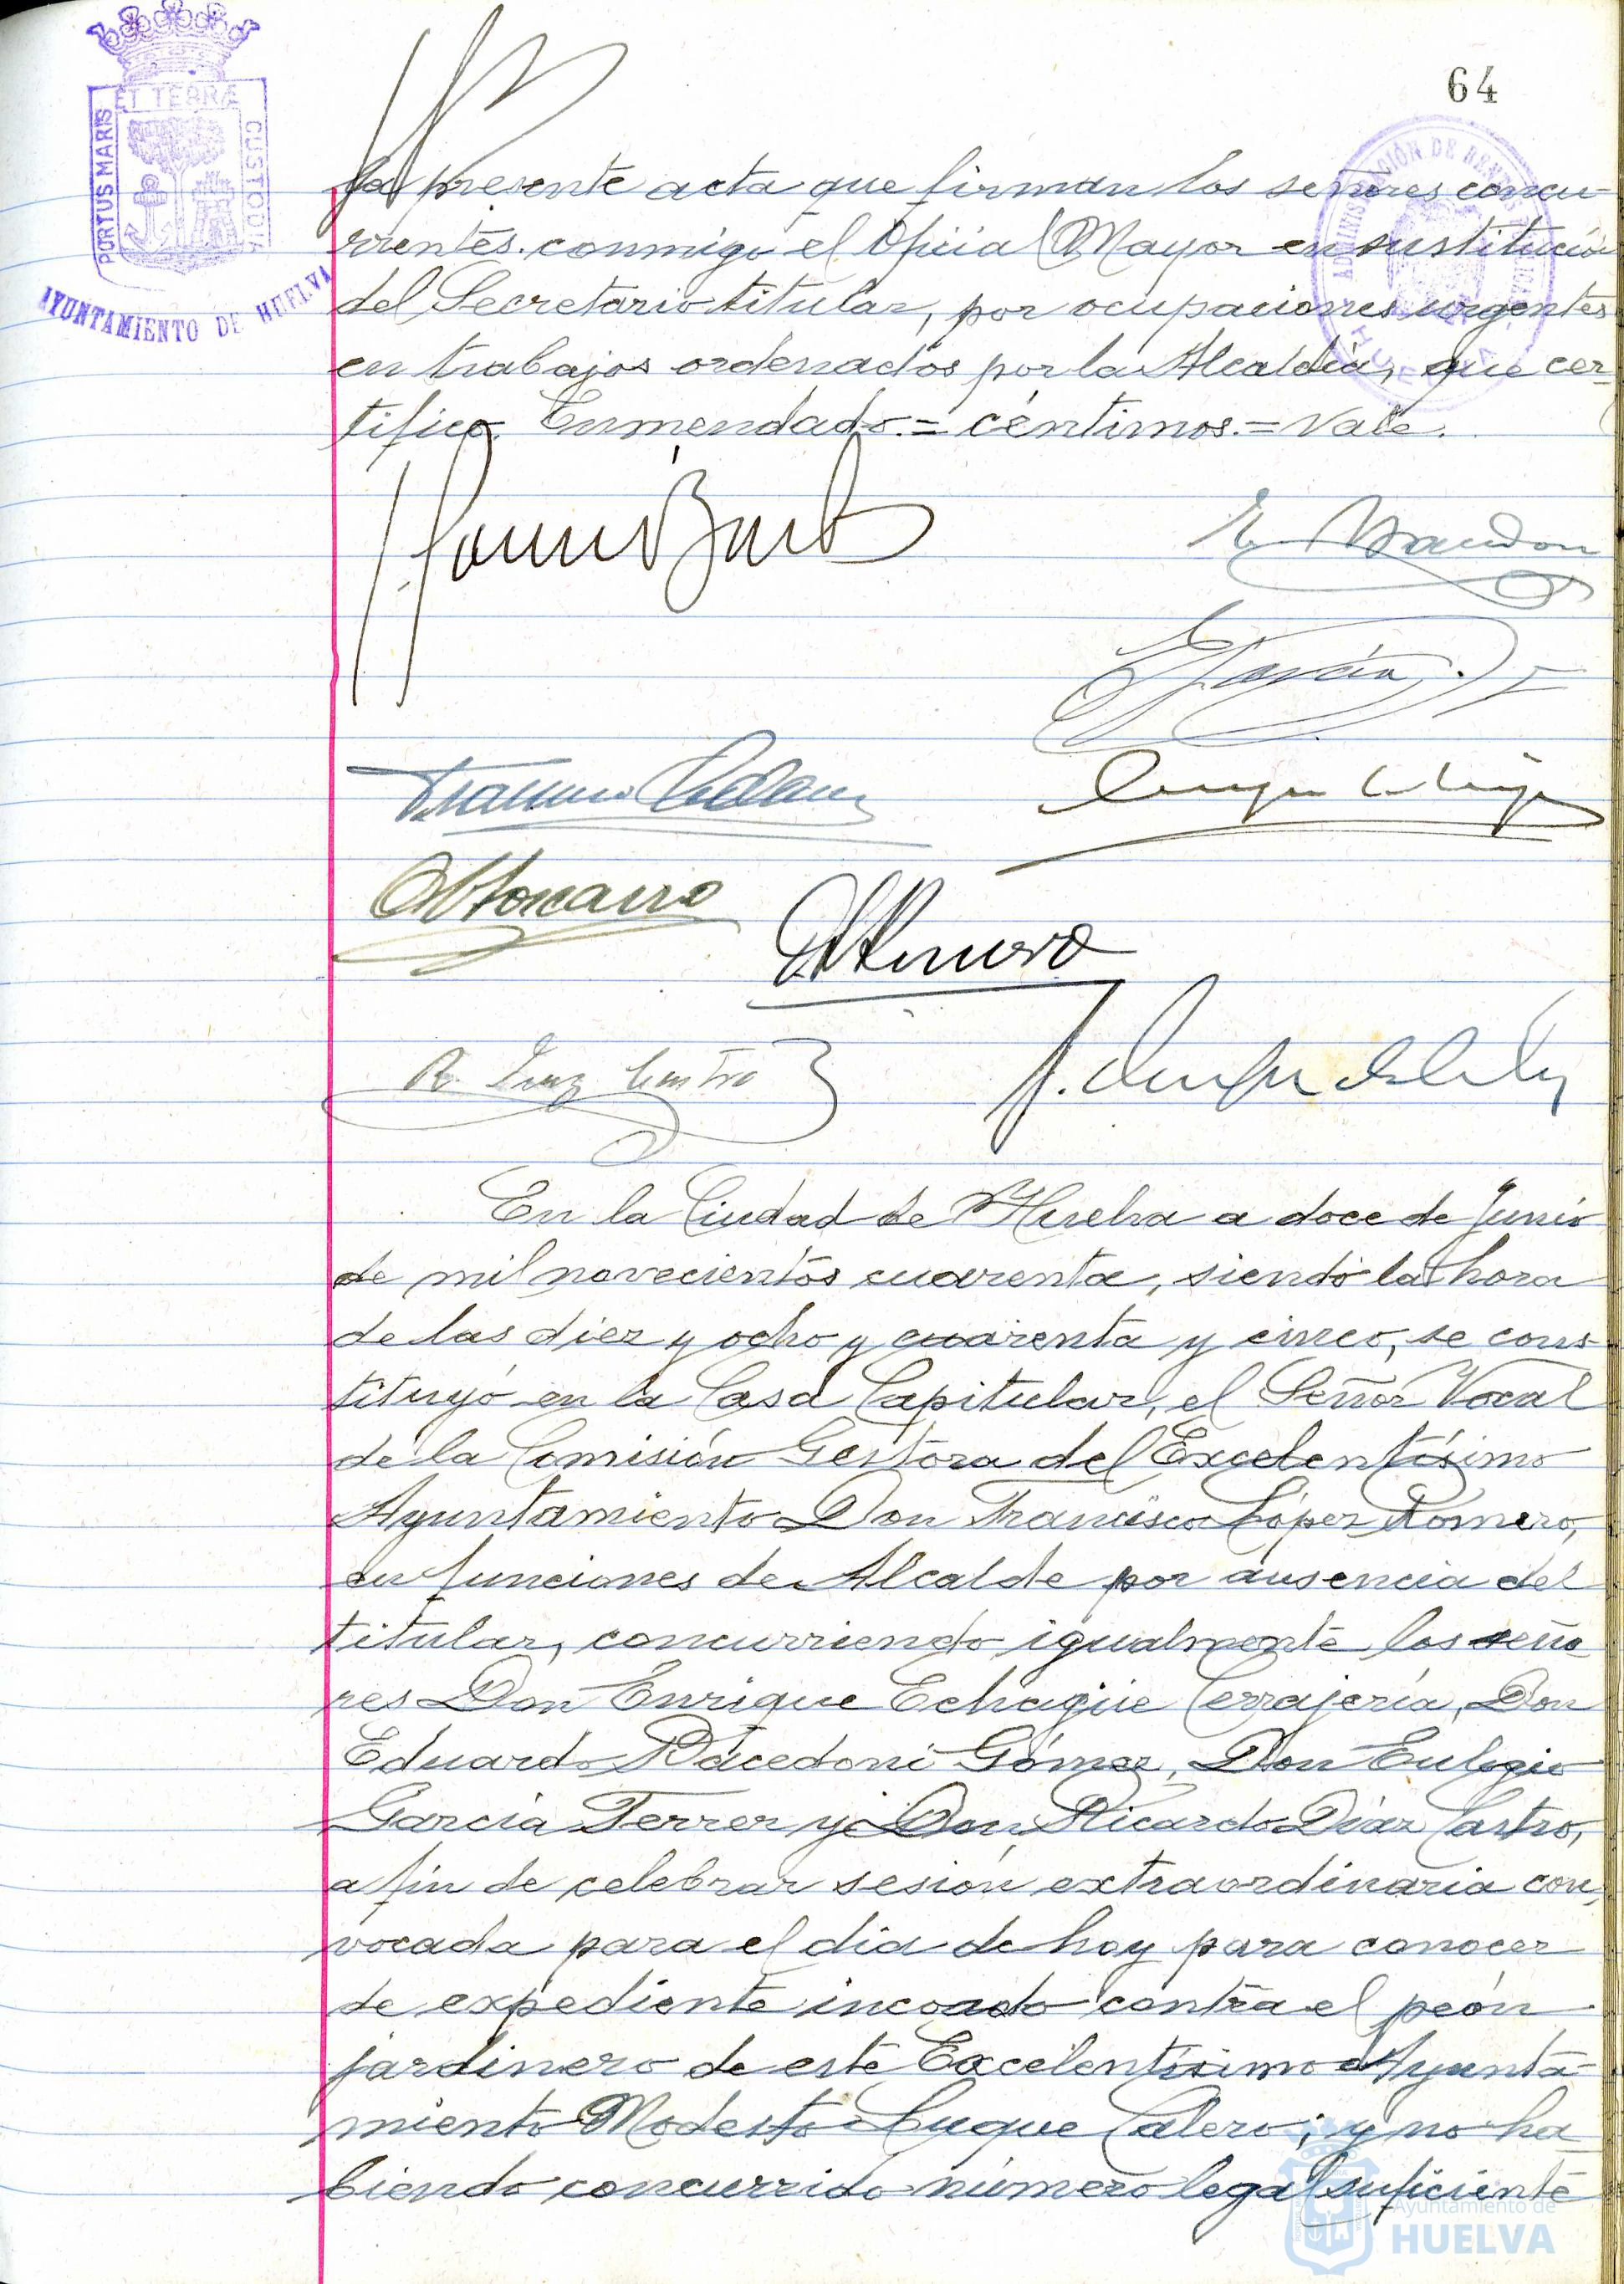 64
PORTUS MARIS ET TERRÆ CUSTODIA
AYUNTAMIENTO DE HUELVA
la presente acta que firman los señores concu-
rrentes conmigo el Oficial Mayor en sustitución
del Secretario titular, por ocupaciones urgentes
en trabajos ordenados por la Alcaldía, que cer-
tifico. Enmendado.= céntimos.= Vale.
R. Díaz Castro
En la Ciudad de Huelva a doce de Junio
de mil novecientos cuarenta, siendo la hora
de las diez y ocho y cuarenta y cinco, se cons-
tituyó en la Casa Capitular, el Señor Vocal
de la Comisión Gestora del Excelentísimo
Ayuntamiento Don Francisco López Romero,
en funciones de Alcalde por ausencia del
titular, concurriendo igualmente los seño
res Don Enrique Echagüe Cerrajería, Don
Eduardo Gómez, Don Eulogio
García Ferrer y Don Ricardo Díaz Castro,
a fin de celebrar sesión extraordinaria con
vocada para el día de hoy para conocer
de expediente incoado contra el peón
jardinero de este Excelentísimo Ayunta-
miento Modesto Luque Calero; y no ha
biendo concurrido número legal suficiente
Ayuntamiento de
HUELVA